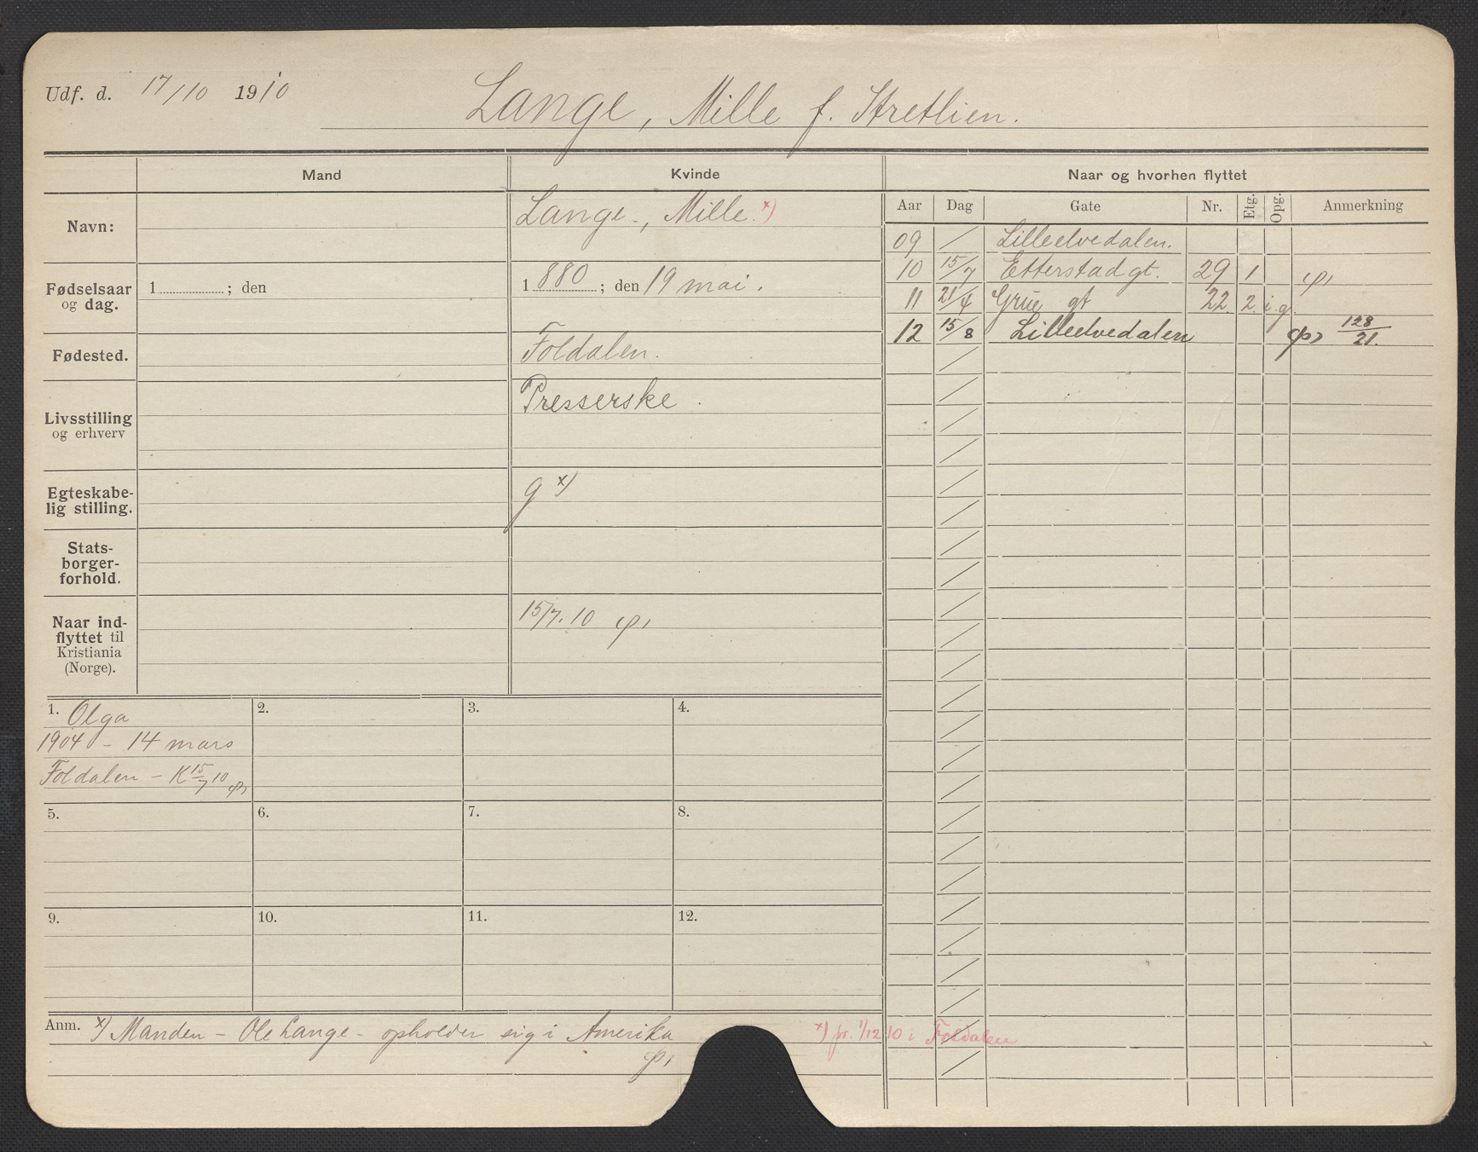 Udf. d. 17/10 1910
Lange, Mille f. Stretlien.
Mand
Kvinde
Naar og hvorhen flyttet
Navn:
Lange, Mille. x)
Aar Dag Gate Nr. Etg. Opg. Anmerkning
09 / Lilleelvedalen.
10 15/7 Etterstadgt. 29 1
11 21/4 Grüe gt 22 2 i.g.
12 15/8 Lilleelvedalen 128/21.
Fødselsaar
og dag.
1 ; den
1 880 ; den 19 mai.
Fødested.
Foldalen.
Livsstilling
og erhverv
Presserske.
Egteskabe-
lig stilling.
g x)
Stats-
borger-
forhold.
Naar ind-
flyttet til
Kristiania
(Norge).
15/7.10
1. Olga
1904 - 14 mars
Foldalen - K 15/7 10
2.
3.
4.
5.
6.
7.
8.
9.
10.
11.
12.
Anm. x) Manden - Ole Lange - opholder sig i Amerika
x) pr. 1/12 10 i Foldalen